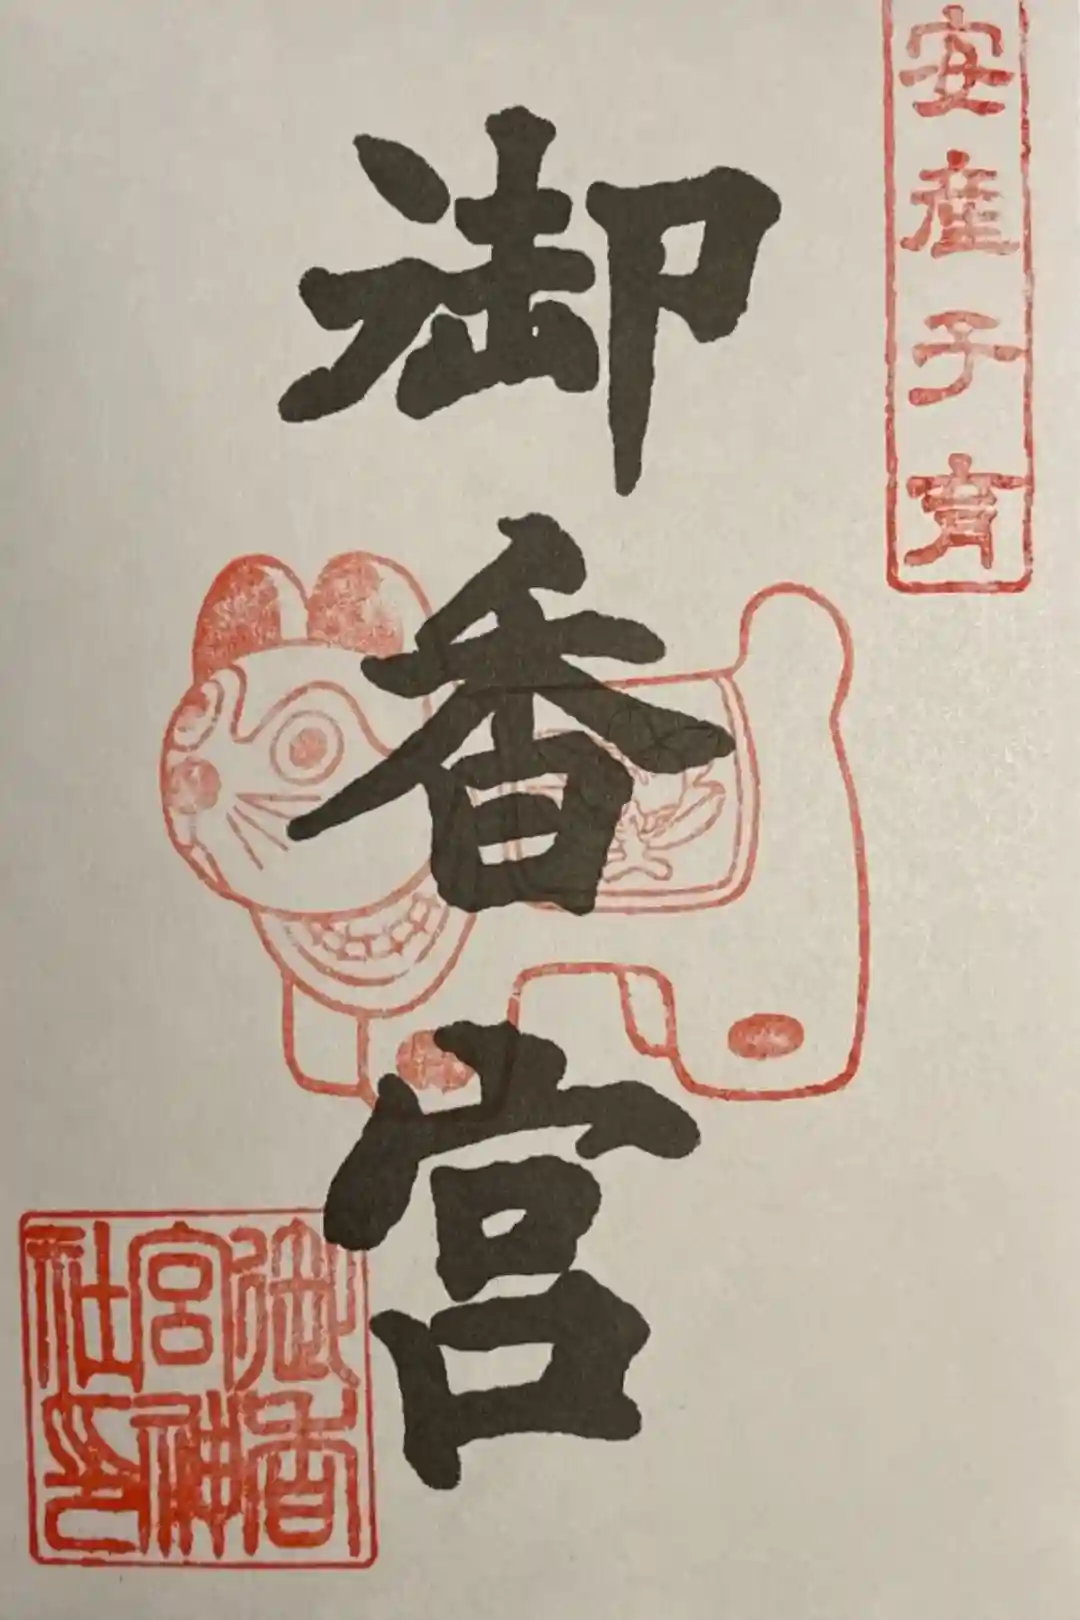 安産子育
御香宮
御香
宮神
社印